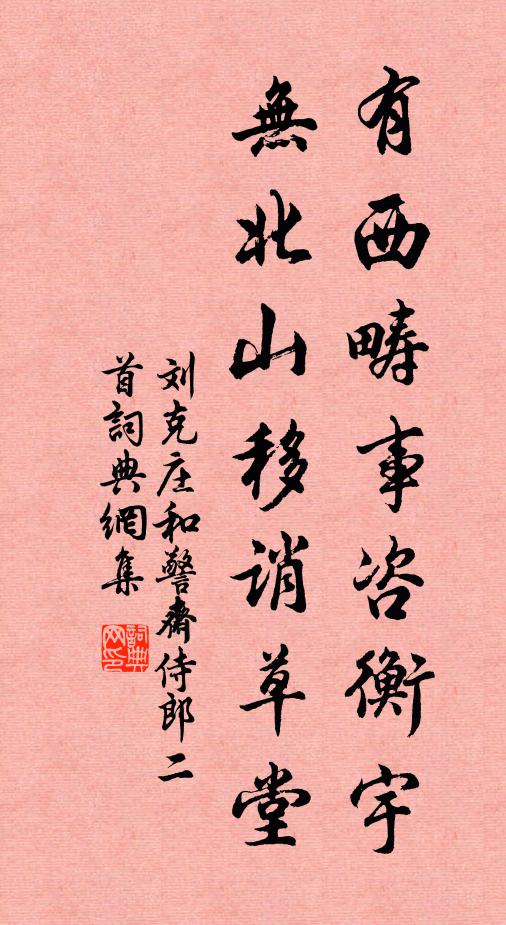 有西疇事咨衡宇
無北山移誚草堂
刘克庄和警齋侍郎二
首詞典網集
詞典网印